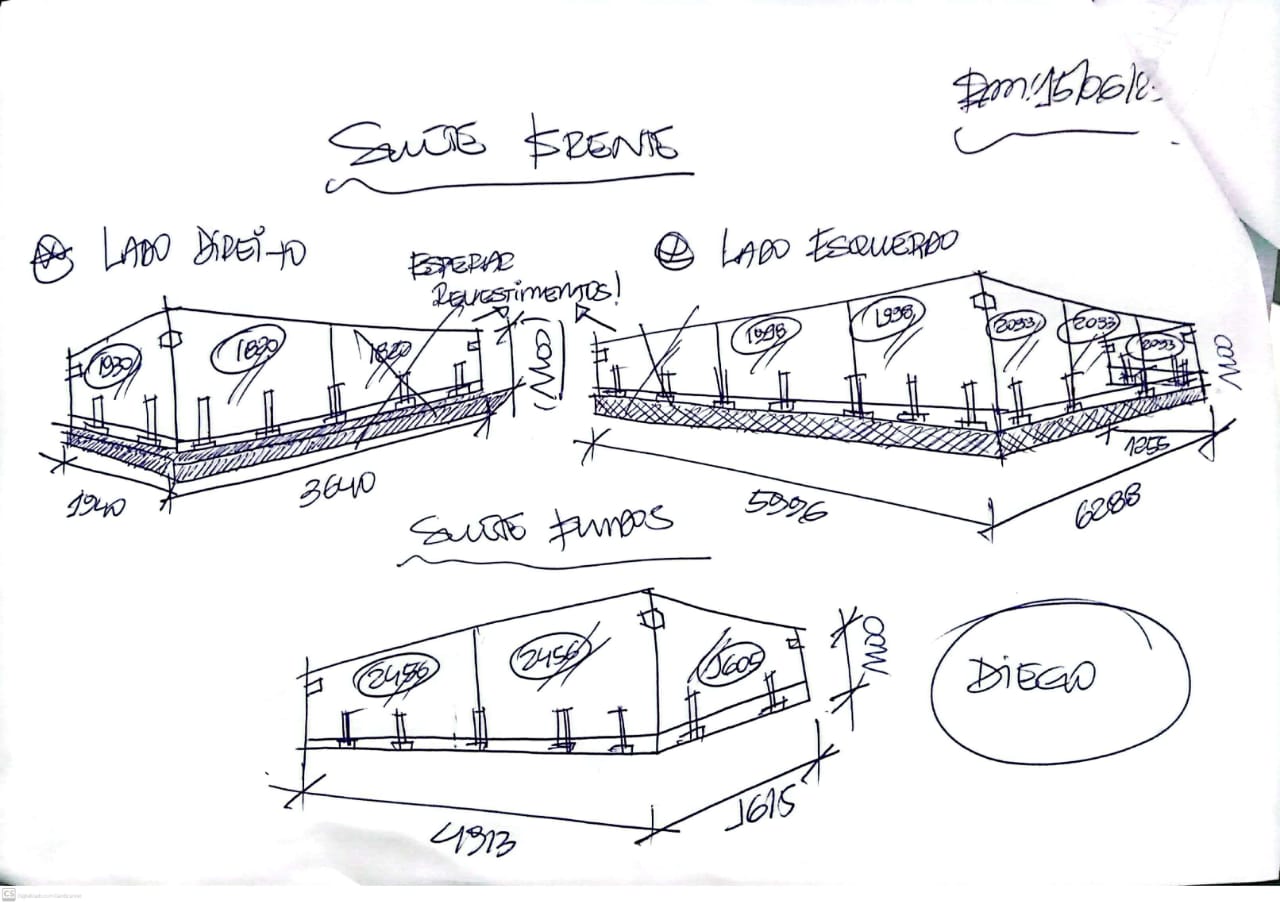 15/06/2
SUÍTE FRENTE
LADO DIREITO
ESPERAR
REVESTIMENTOS!
LADO ESQUERDO
1930
1820
1820
1100
1998
1998
2093
2093
2093
1100
1940
3640
5996
6288
1255
SUÍTE FUNDOS
2456
2456
1605
1100
4913
1615
DIEGO
CS